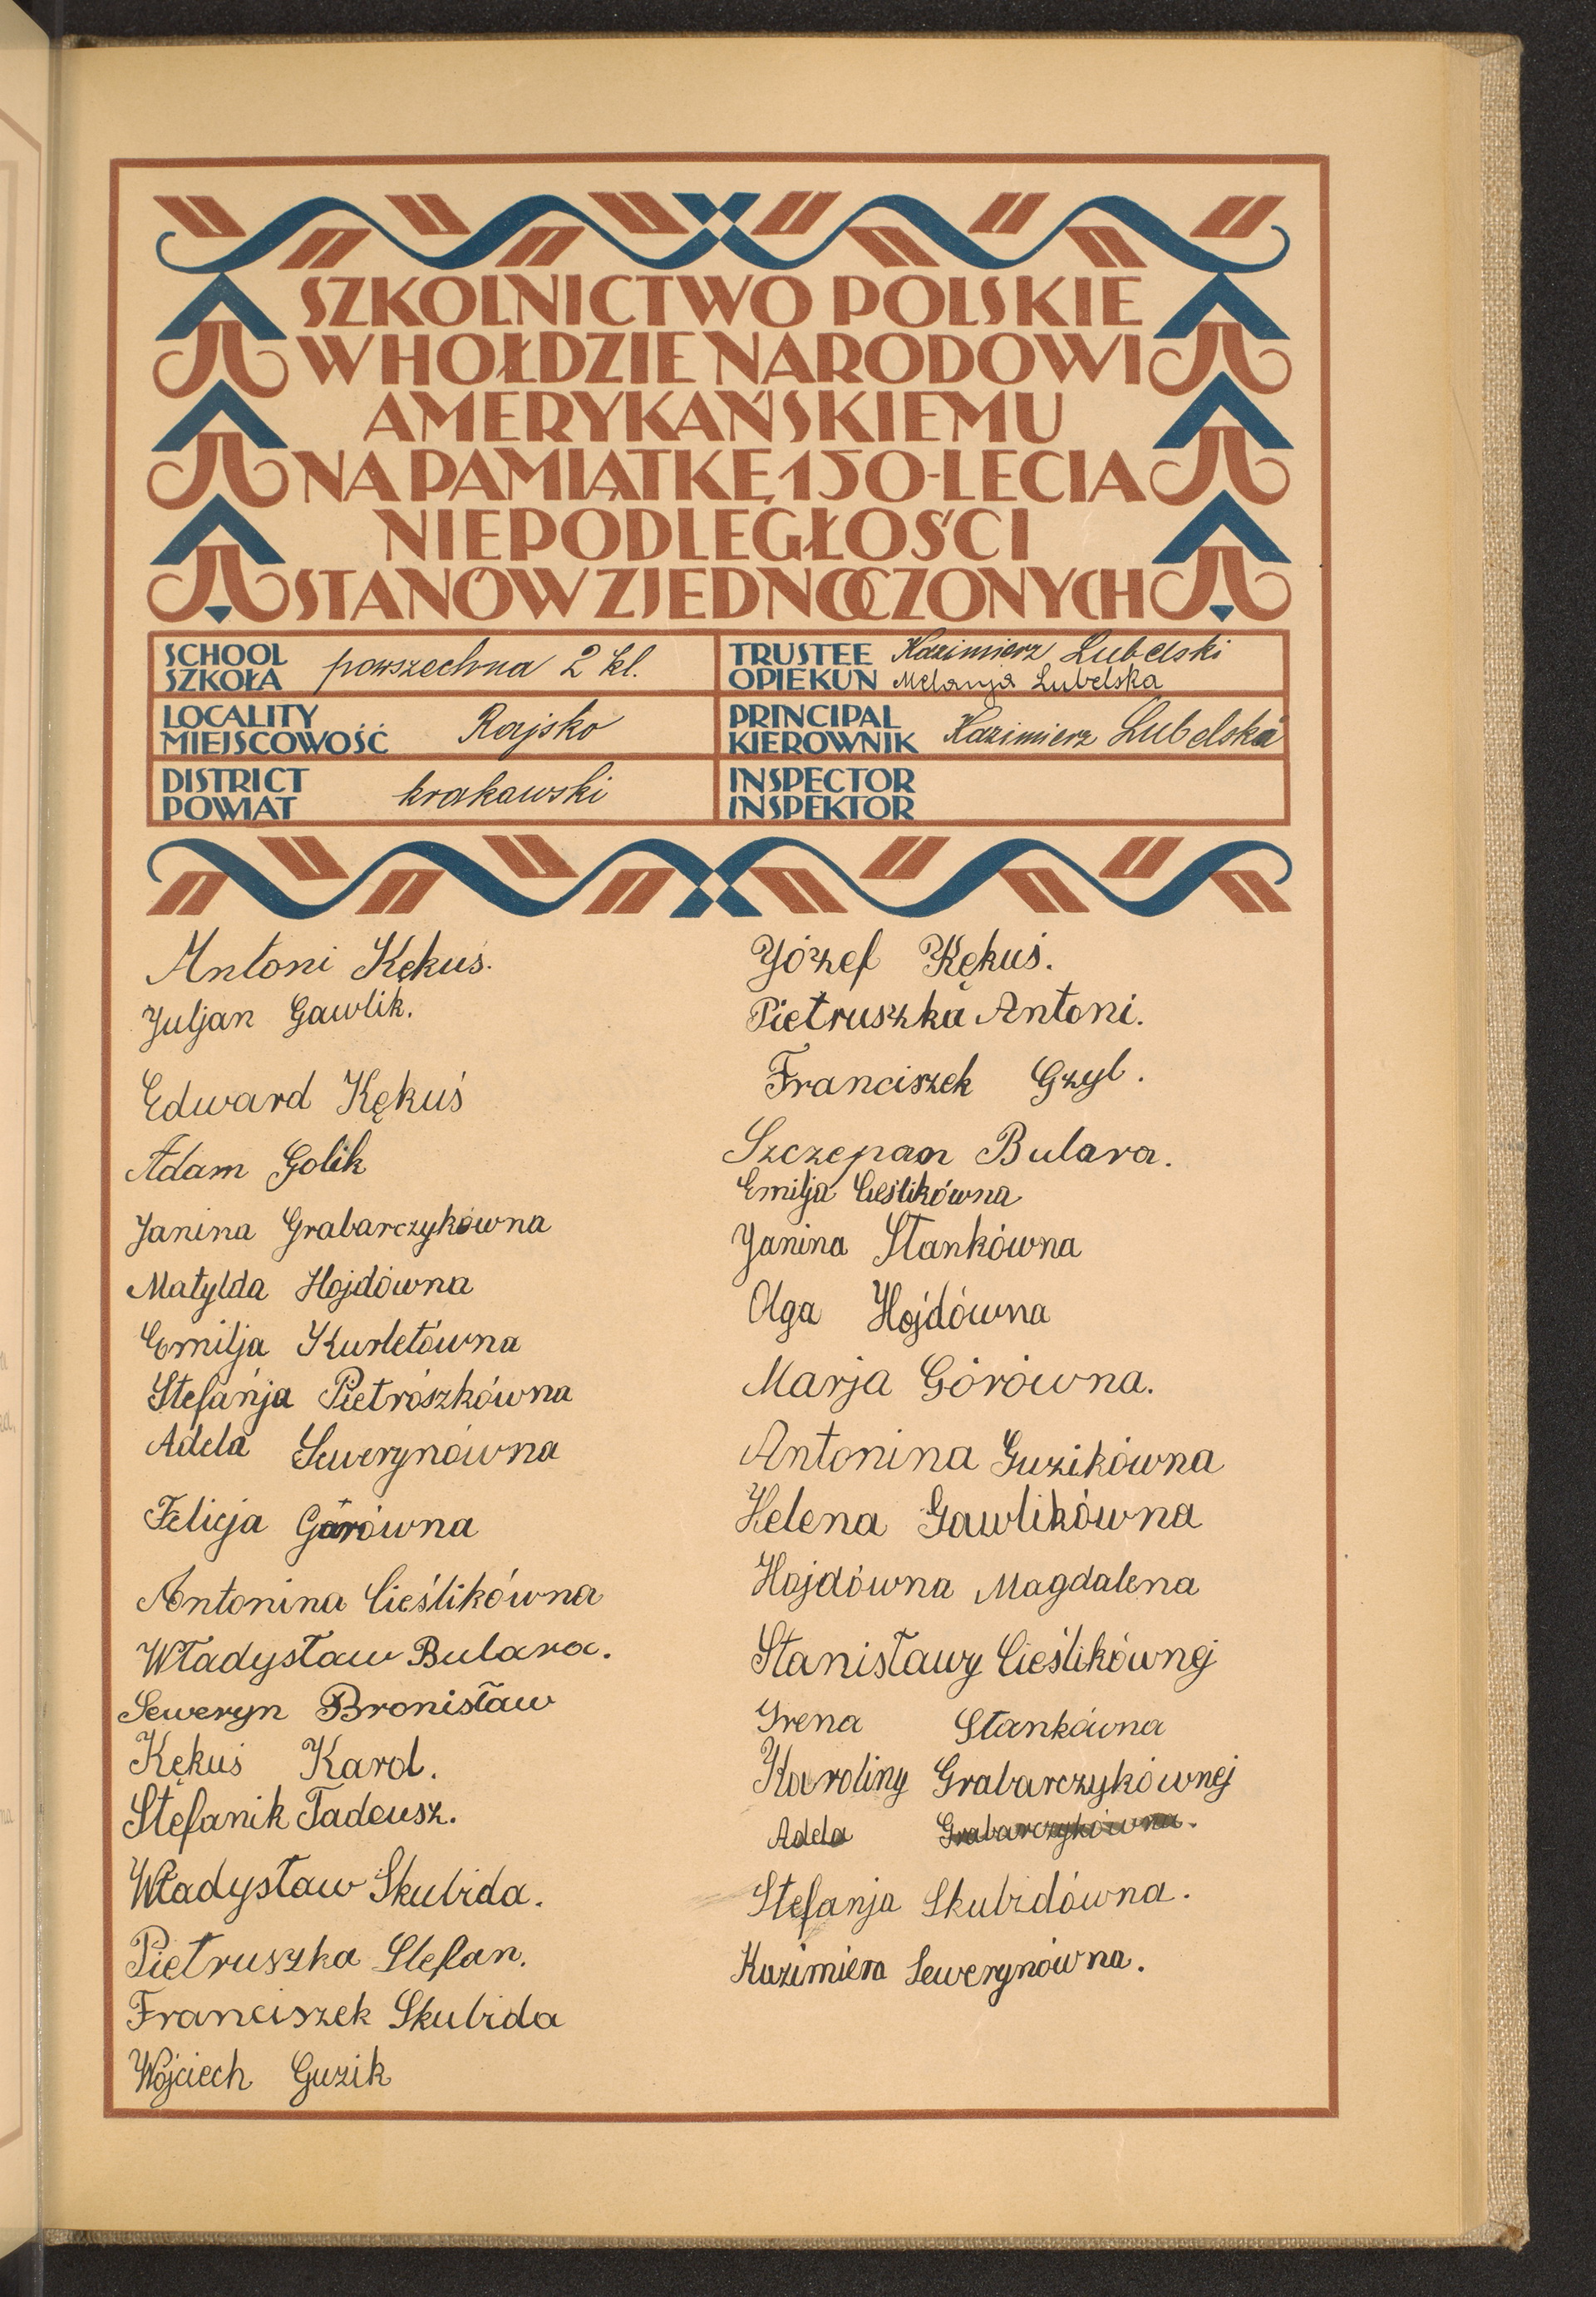 SZKOLNICTWO POLSKIE
W HOŁDZIE NARODOWI
AMERYKAŃSKIEMU
NA PAMIĄTKĘ 150-LECIA
NIEPODLEGŁOŚCI
STANÓW ZJEDNOCZONYCH
SCHOOL
SZKOŁA
powszechna 2 kl.
TRUSTEE
OPIEKUN
Kazimierz Lubelski
Melanja Lubelska
LOCALITY
MIEJSCOWOŚĆ
Rajsko
PRINCIPAL
KIEROWNIK
Kazimierz Lubelski
DISTRICT
POWIAT
krakowski
INSPECTOR
INSPEKTOR
Antoni Kękuś.
Juljan Gawlik.
Edward Kękuś
Adam Golik
Janina Grabarczykówna
Matylda Hojdówna
Emilja Kurletówna
Stefanja Pietrószkówna
Adela Sewerynówna
Felicja Górówna
Antonina Cieślikówna
Władysław Bulara.
Seweryn Bronisław
Kękuś Karol.
Stefanik Tadeusz.
Władysław Skubida.
Pietruszka Stefan.
Franciszek Skubida
Wojciech Guzik
Józef Kękuś.
Pietruszka Antoni.
Franciszek Gzyl.
Szczepan Bulara.
Emilja Cieślikówna
Janina Stankówna
Olga Hojdówna
Marja Górówna.
Antonina Guzikówna
Helena Gawlikówna
Hojdówna Magdalena
Stanisławy Cieślikównej
Irena Stankówna
Karoliny Grabarczykównej
Adela Grabarczykówna.
Stefanja Skubidówna.
Kazimiera Sewerynówna.